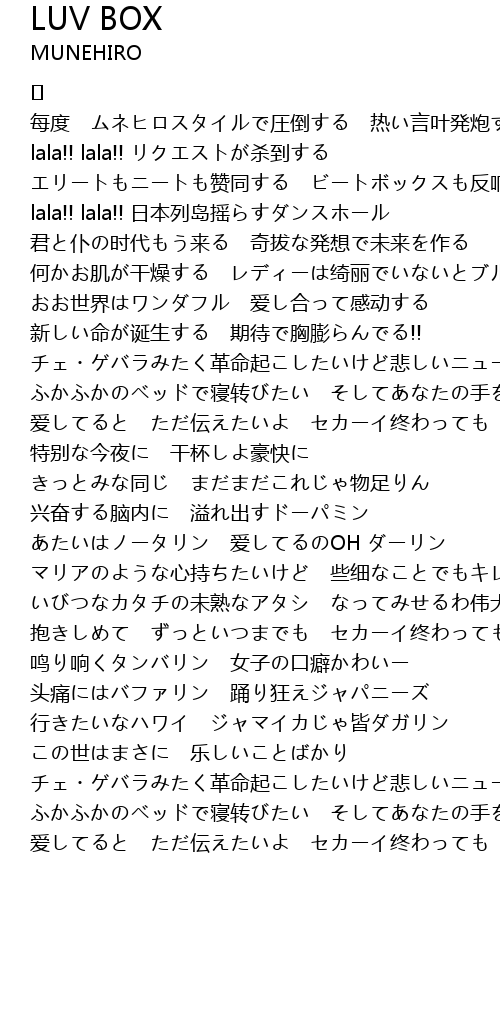 LUV BOX
MUNEHIRO
[]
每度　ムネヒロスタイルで圧倒する　热い言叶発炮す
lala!! lala!! リクエストが杀到する
エリートもニートも赞同する　ビートボックスも反响
lala!! lala!! 日本列岛摇らすダンスホール
君と仆の时代もう来る　奇抜な発想で未来を作る
何かお肌が干燥する　レディーは绮丽でいないとブル
おお世界はワンダフル　爱し合って感动する
新しい命が诞生する　期待で胸膨らんでる!!
チェ・ゲバラみたく革命起こしたいけど悲しいニュー
ふかふかのベッドで寝転びたい　そしてあなたの手を
爱してると　ただ伝えたいよ　セカーイ终わっても
特别な今夜に　干杯しよ豪快に
きっとみな同じ　まだまだこれじゃ物足りん
兴奋する脳内に　溢れ出すドーパミン
あたいはノータリン　爱してるのOH ダーリン
マリアのような心持ちたいけど　些细なことでもキレ
いびつなカタチの未熟なアタシ　なってみせるわ伟大
抱きしめて　ずっといつまでも　セカーイ终わっても
鸣り响くタンバリン　女子の口癖かわいー
头痛にはバファリン　踊り狂えジャパニーズ
行きたいなハワイ　ジャマイカじゃ皆ダガリン
この世はまさに　乐しいことばかり
チェ・ゲバラみたく革命起こしたいけど悲しいニュー
ふかふかのベッドで寝転びたい　そしてあなたの手を
爱してると　ただ伝えたいよ　セカーイ终わっても